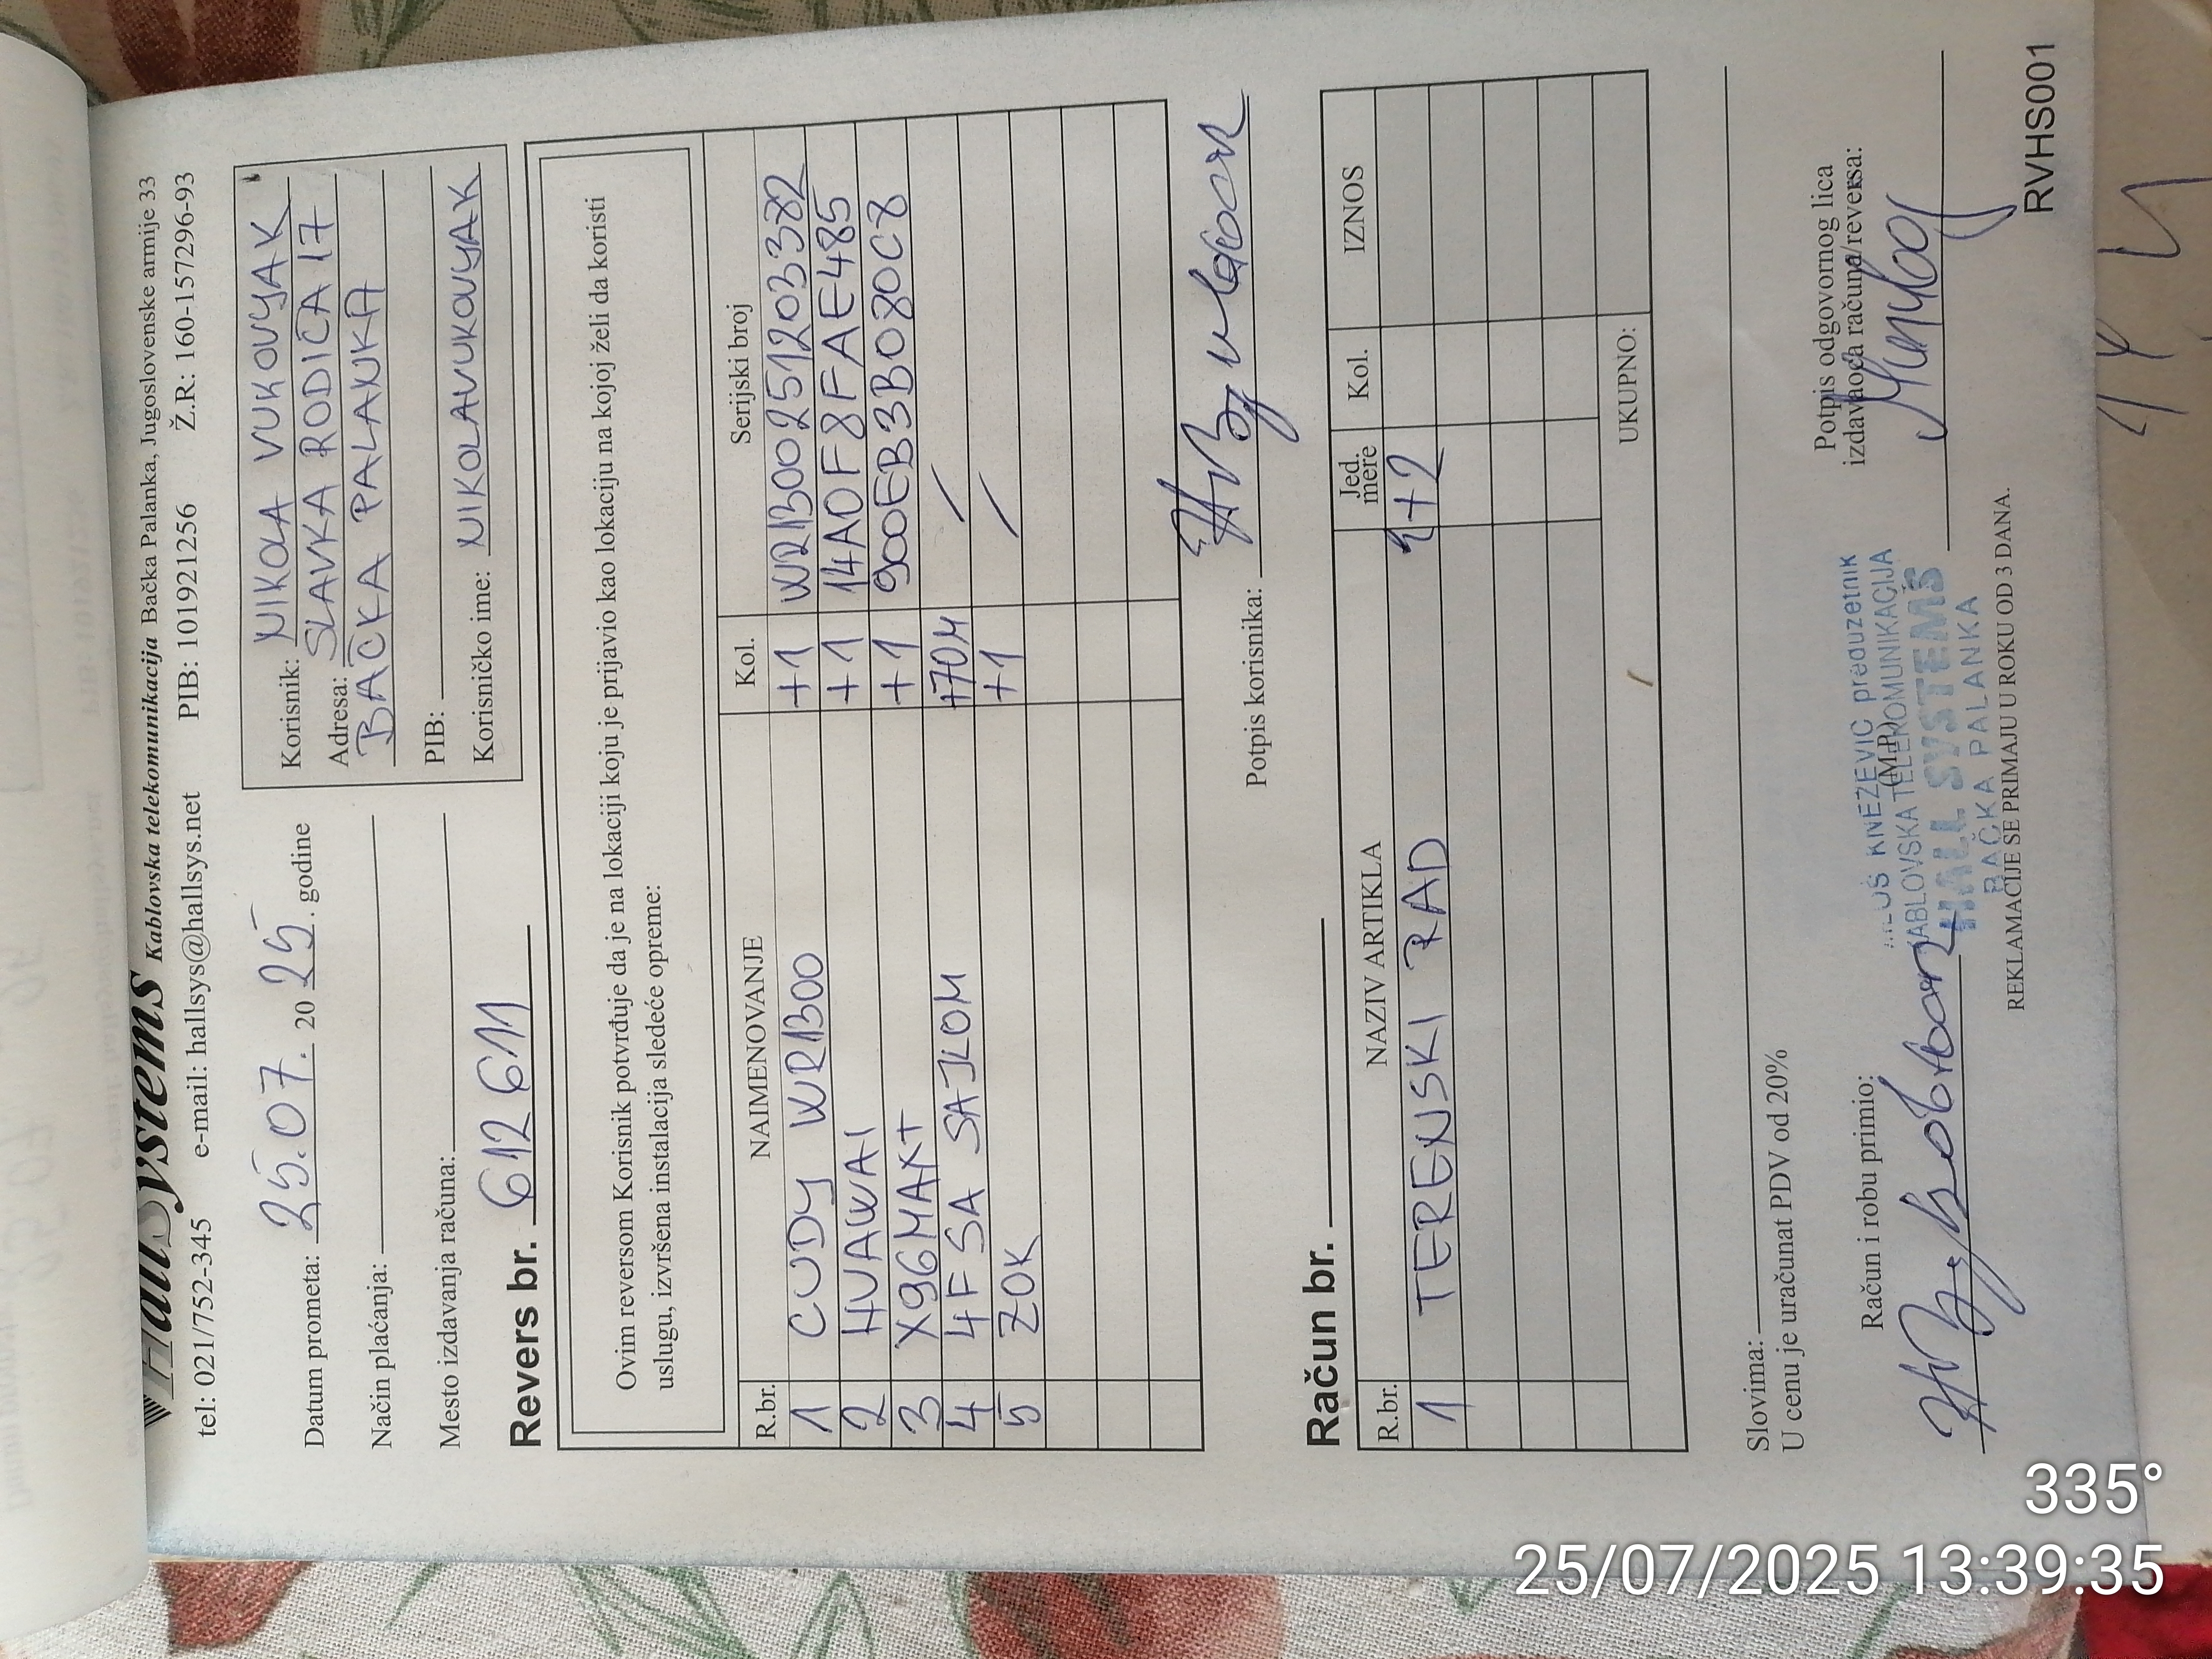 HallSystems Kablovska telekomunikacija Bačka Palanka, Jugoslovenske armije 33
tel: 021/752-345 e-mail: hallsys@hallsys.net PIB: 101921256 Ž.R: 160-157296-93
Datum prometa: 25.07. 2025. godine
Način plaćanja:
Mesto izdavanja računa:
Korisnik: NIKOLA VUKOVYAK
Adresa: SLAVKA RODIĆA 17
BAČKA PALANKA
PIB:
Korisničko ime: NIKOLAVUKOVYAK
Revers br. 612611
Ovim reversom Korisnik potvrđuje da je na lokaciji koju je prijavio kao lokaciju na kojoj želi da koristi
uslugu, izvršena instalacija sledeće opreme:
R.br. NAIMENOVANJE Kol. Serijski broj
1 CUDY WR1300 +1 WR1300251203382
2 HUAWAI +1 14A0F8FFAE485
3 X96MAX+ +1 900EB3B080C8
4 4F SA SAJLOM +70M /
5 ZOK +1 /
Potpis korisnika:
Račun br.
R.br. NAZIV ARTIKLA Jed. mere Kol. IZNOS
1 TERENSKI RAD 1+2
UKUPNO:
Slovima:
U cenu je uračunat PDV od 20%
Račun i robu primio:
(M.P.)
Potpis odgovornog lica
izdavaoca računa/reversa:
KNEŽEVIĆ preduzetnik
KABLOVSKA TELEKOMUNIKACIJA
HALL SYSTEMS
BAČKA PALANKA
REKLAMACIJE SE PRIMAJU U ROKU OD 3 DANA.
RVHS001
335°
25/07/2025 13:39:35